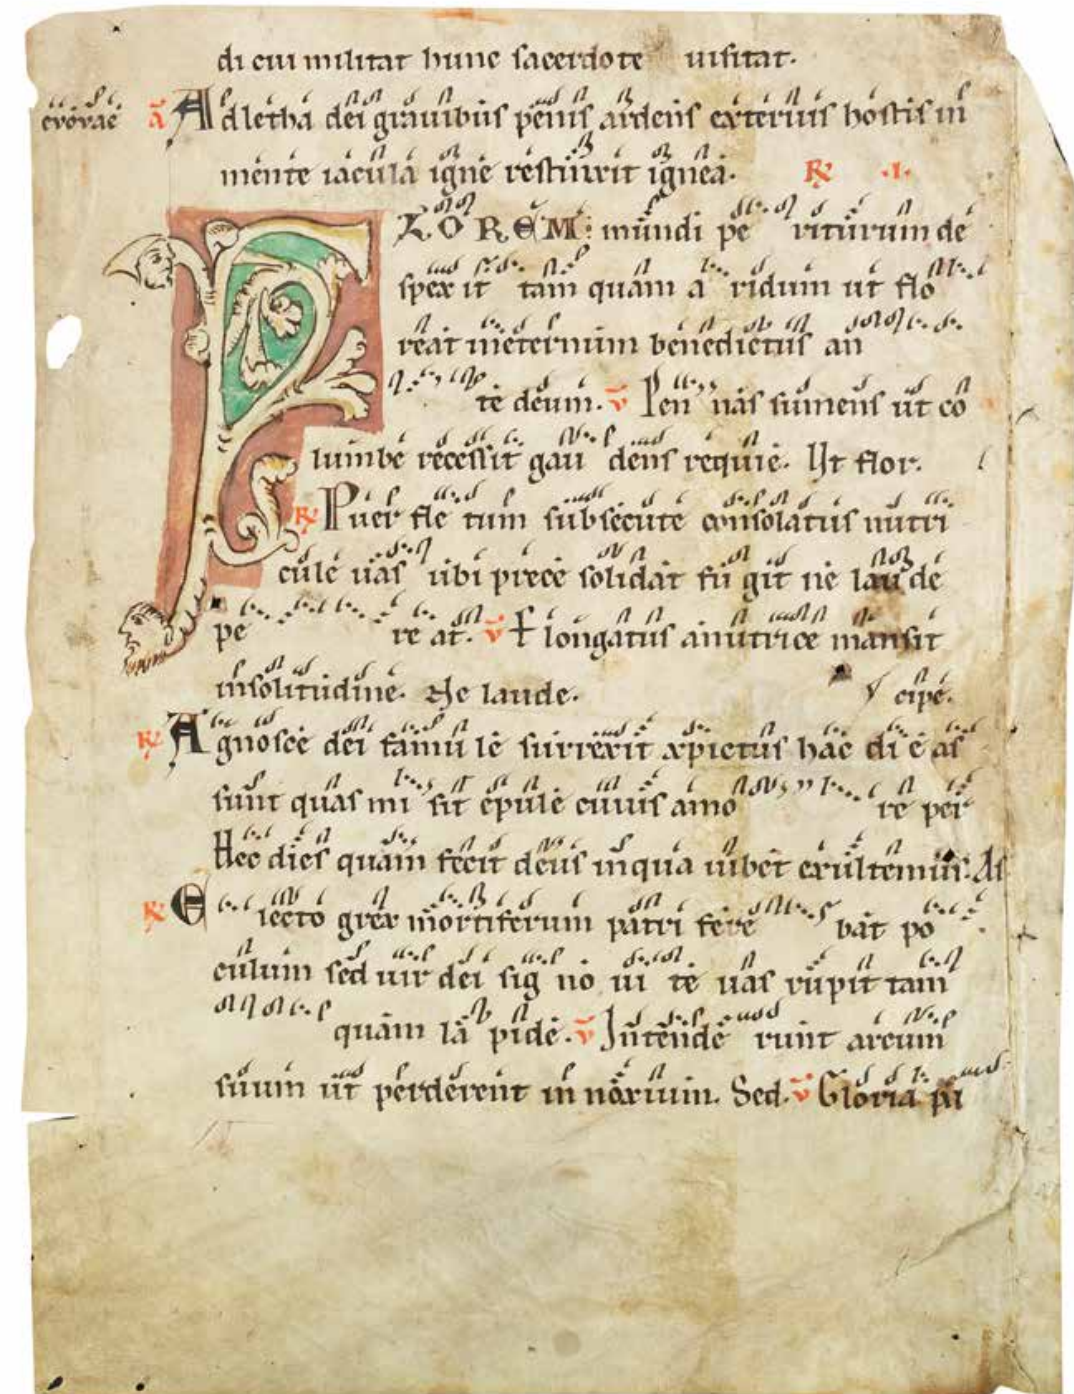 di cui militat hunc sacerdote uisitat.
euouae a Adletha dei grauibus penis ardens exterius hostis in
mente iacula igne restinxit ignea. R .I.
FLOREM mundi pe riturum de
spex it tam quam a ridum ut flo
reat ineternum benedictus an
te deum. V Pen nas sumens ut co
lumbe recessit gau dens requie. Ut flor.
R Puer fle tum subsecute consolatus nutri
cule uas ubi prece solidat fu git ne laude
pe re at. V Elongatus anutrice mansit
insolitudine. Ne laude. cipe.
R Agnosce dei famu le surrexit xpictus hac di e as
sunt quas mi sit epule cuius amo re per
Hec dies quam fecit deus inqua iubet exultemus. As
R Eiecto grex mortiferum patri fere bat po
culum sed uir dei sig no ui te uas rupit tam
quam la pide. V Intende runt arcum
suum ut perderent in noxium. Sed. V Gloria pa